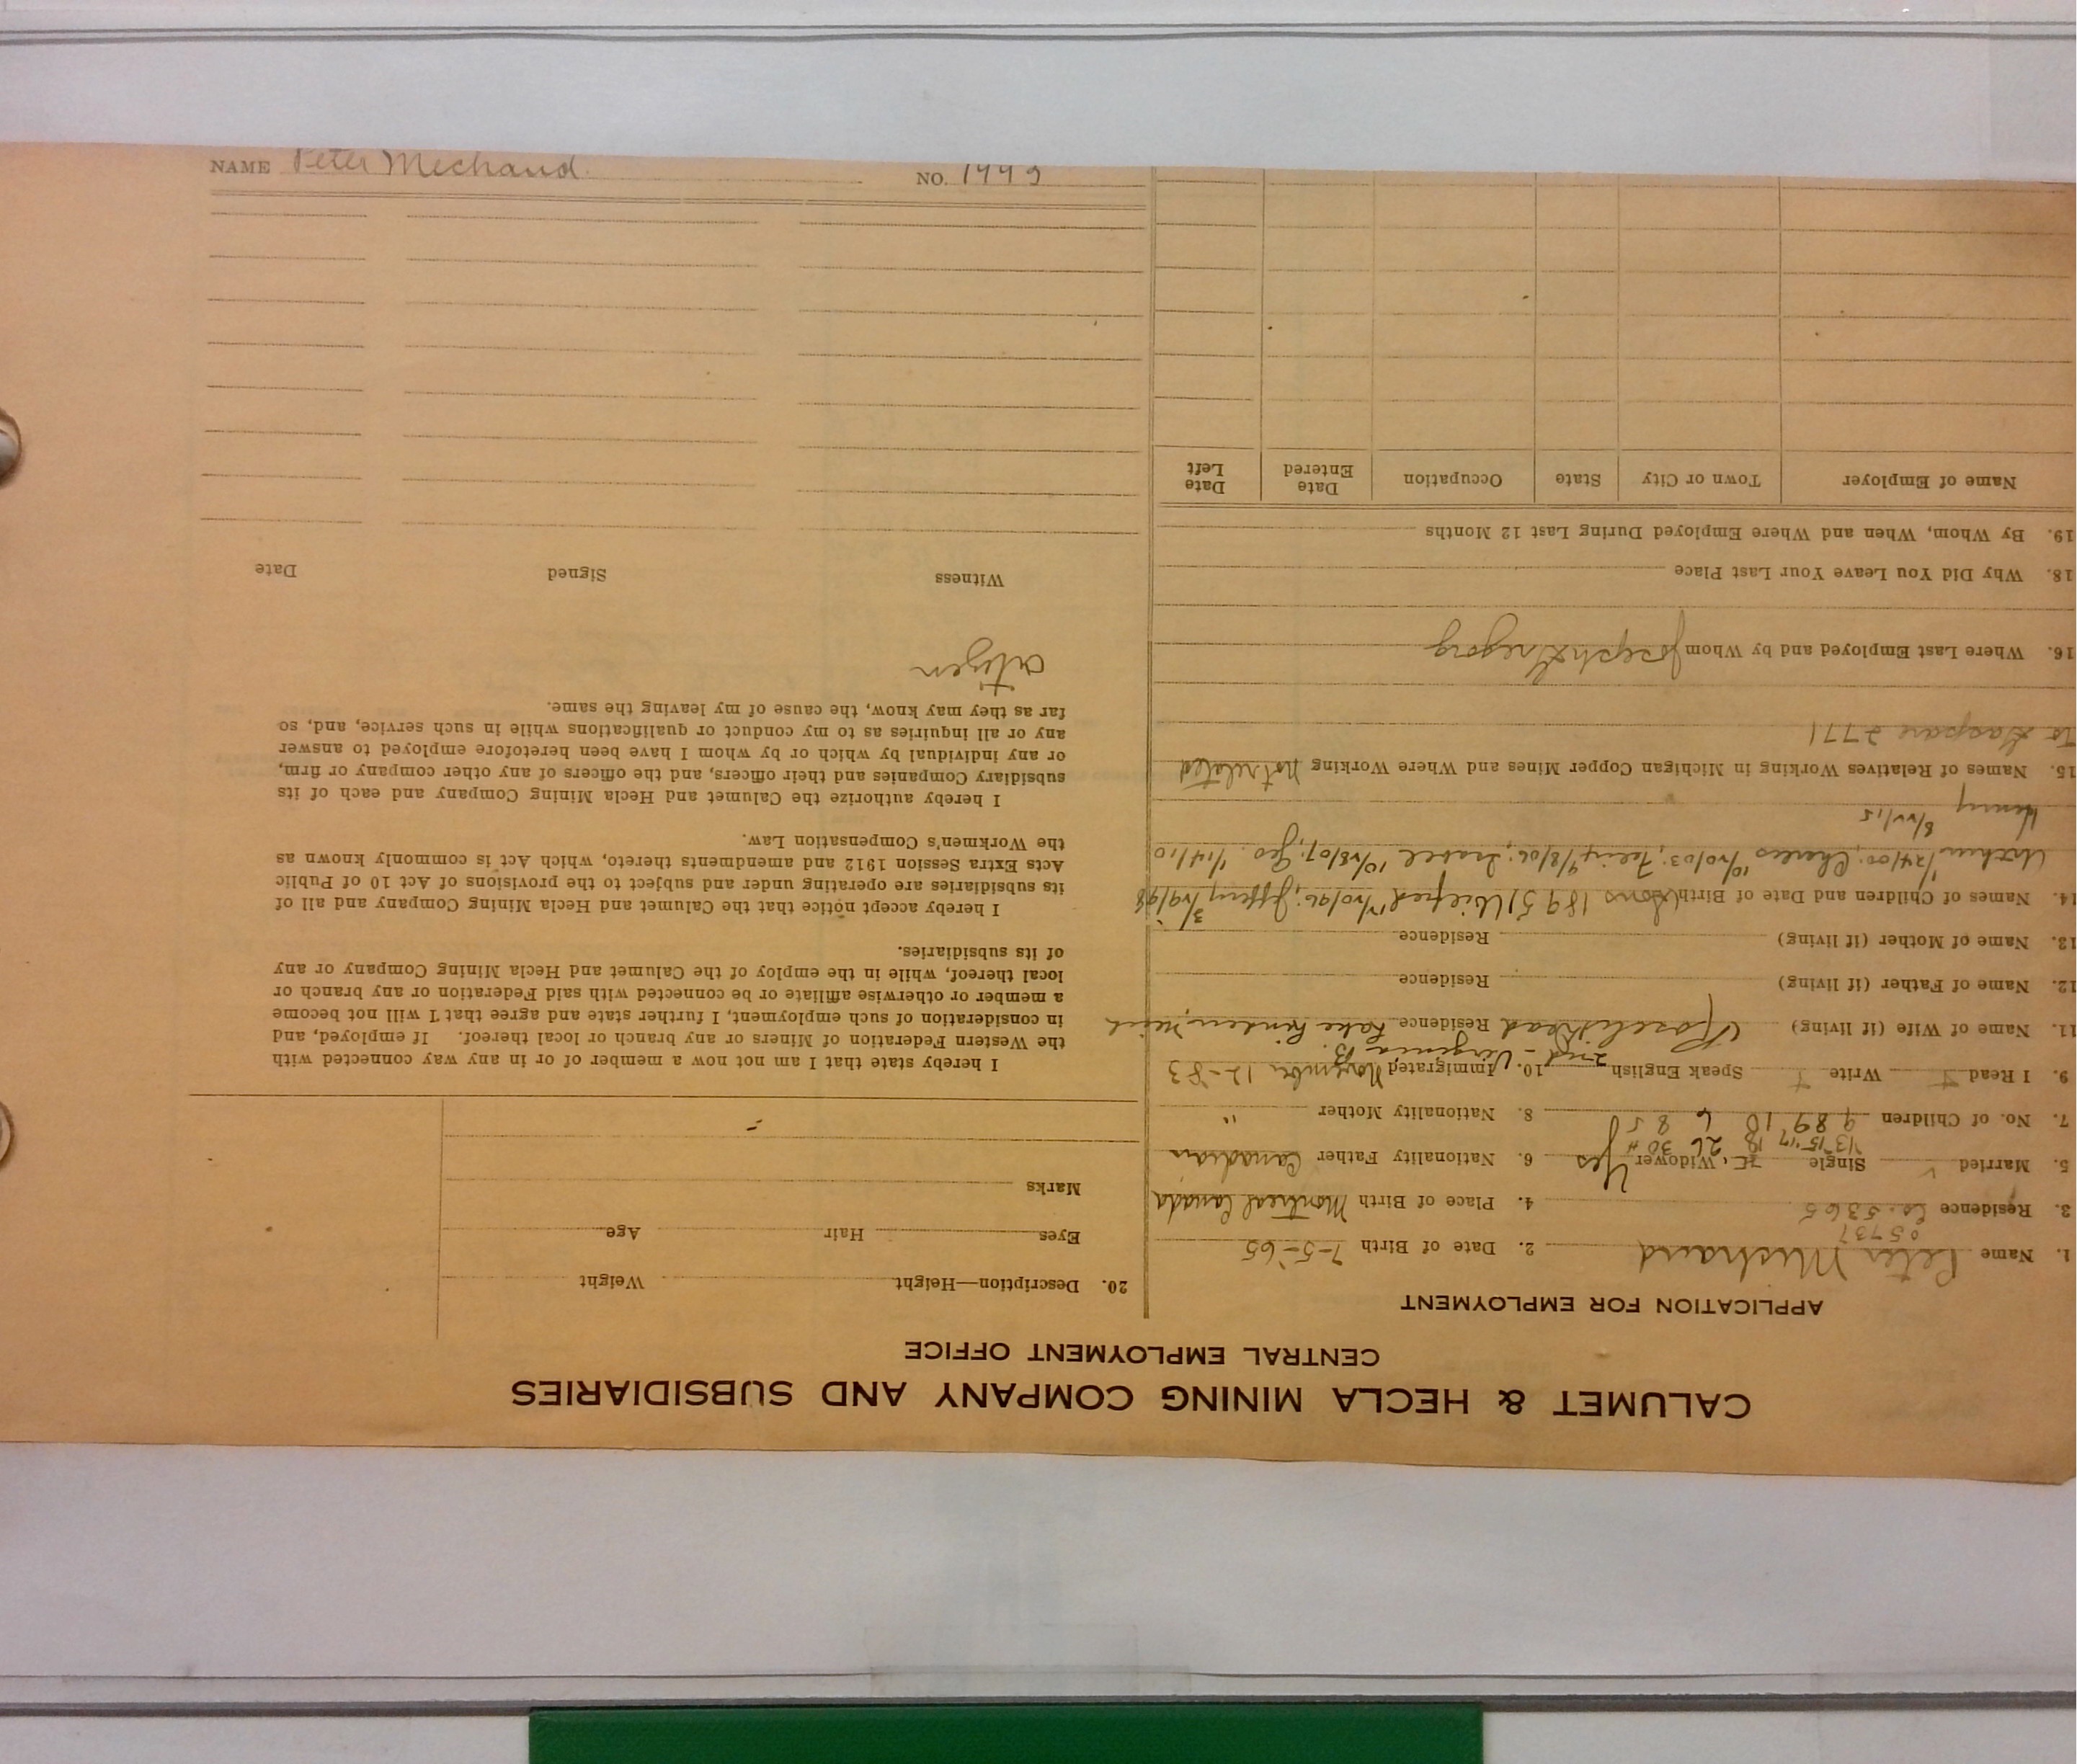 CALUMET & HECLA MINING COMPANY AND SUBSIDIARIES
CENTRAL EMPLOYMENT OFFICE
APPLICATION FOR EMPLOYMENT
1. Name Peter Mishaud 2. Date of Birth 7-5-'65
05737
3. Residence Co. 5365 4. Place of Birth Montreal Canada
5. Married Single Widower Yes 6. Nationality Father Canadian
'13 '15 '17 18 26 30
7. No. of Children 9 8 9 10 6 8 5 8. Nationality Mother "
9. I Read Write Speak English 10. Immigrated November 12-83
2nd - Virginia B.
11. Name of Wife (if living) Residence Lake Linden, Mich
12. Name of Father (if living) Residence
13. Name of Mother (if living) Residence
14. Names of Children and Date of Birth 1895; Wilfred 10/96; 3/29/98
1/24/00; Charles 10/10/03; 4/8/06; Isabel 10/28/07; Geo. 1/14/10
Henry 8/22/15
15. Names of Relatives Working in Michigan Copper Mines and Where Working Not related
to Gaspare 2771
16. Where Last Employed and by Whom Joseph Gregory
18. Why Did You Leave Your Last Place
19. By Whom, When and Where Employed During Last 12 Months
Name of Employer Town or City State Occupation Date Entered Date Left
20. Description—Height Weight
Eyes Hair Age
Marks
I hereby state that I am not now a member of or in any way connected with
the Western Federation of Miners or any branch or local thereof. If employed, and
in consideration of such employment, I further state and agree that I will not become
a member or otherwise affiliate or be connected with said Federation or any branch or
local thereof, while in the employ of the Calumet and Hecla Mining Company or any
of its subsidiaries.
I hereby accept notice that the Calumet and Hecla Mining Company and all of
its subsidiaries are operating under and subject to the provisions of Act 10 of Public
Acts Extra Session 1912 and amendments thereto, which Act is commonly known as
the Workmen's Compensation Law.
I hereby authorize the Calumet and Hecla Mining Company and each of its
subsidiary Companies and their officers, and the officers of any other company or firm,
or any individual by which or by whom I have been heretofore employed to answer
any or all inquiries as to my conduct or qualifications while in such service, and, so
far as they may know, the cause of my leaving the same.
citizen
Witness Signed Date
NAME Peter Mechaud NO. 1449